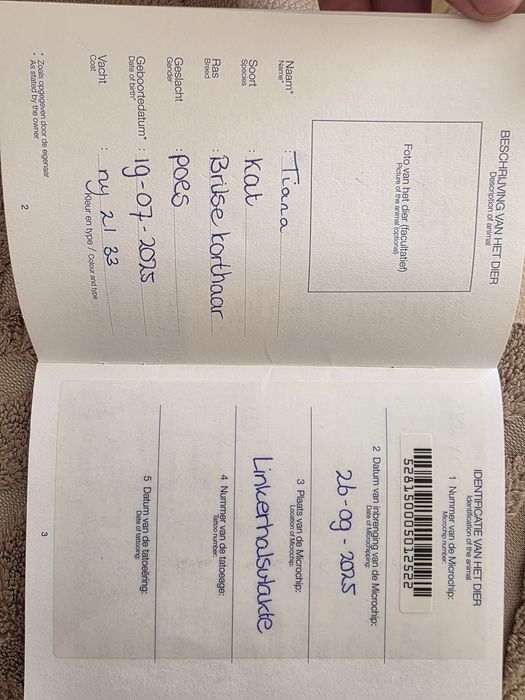 BESCHRIJVING VAN HET DIER
Description of animal
Foto van het dier (facultatief)
Picture of the animal (optional)
Naam* : Tiana
Name*
Soort : Kat
Species
Ras : Britse korthaar
Breed
Geslacht : poes
Gender
Geboortedatum* : 19-07-2025
Date of birth*
Vacht : ny 21 33
Coat
Kleur en type / Colour and type
* Zoals opgegeven door de eigenaar
* As stated by the owner
2
IDENTIFICATIE VAN HET DIER
Identification of the animal
1 Nummer van de Microchip:
Microchip number:
528150005012522
2 Datum van inbrenging van de Microchip:
Date of Microchipping:
26-09-2025
3 Plaats van de Microchip:
Location of Microchip:
Linkerhalsvlakte
4 Nummer van de tatoeage:
Tattoo number:
5 Datum van de tatoeëring:
Date of tattooing:
3